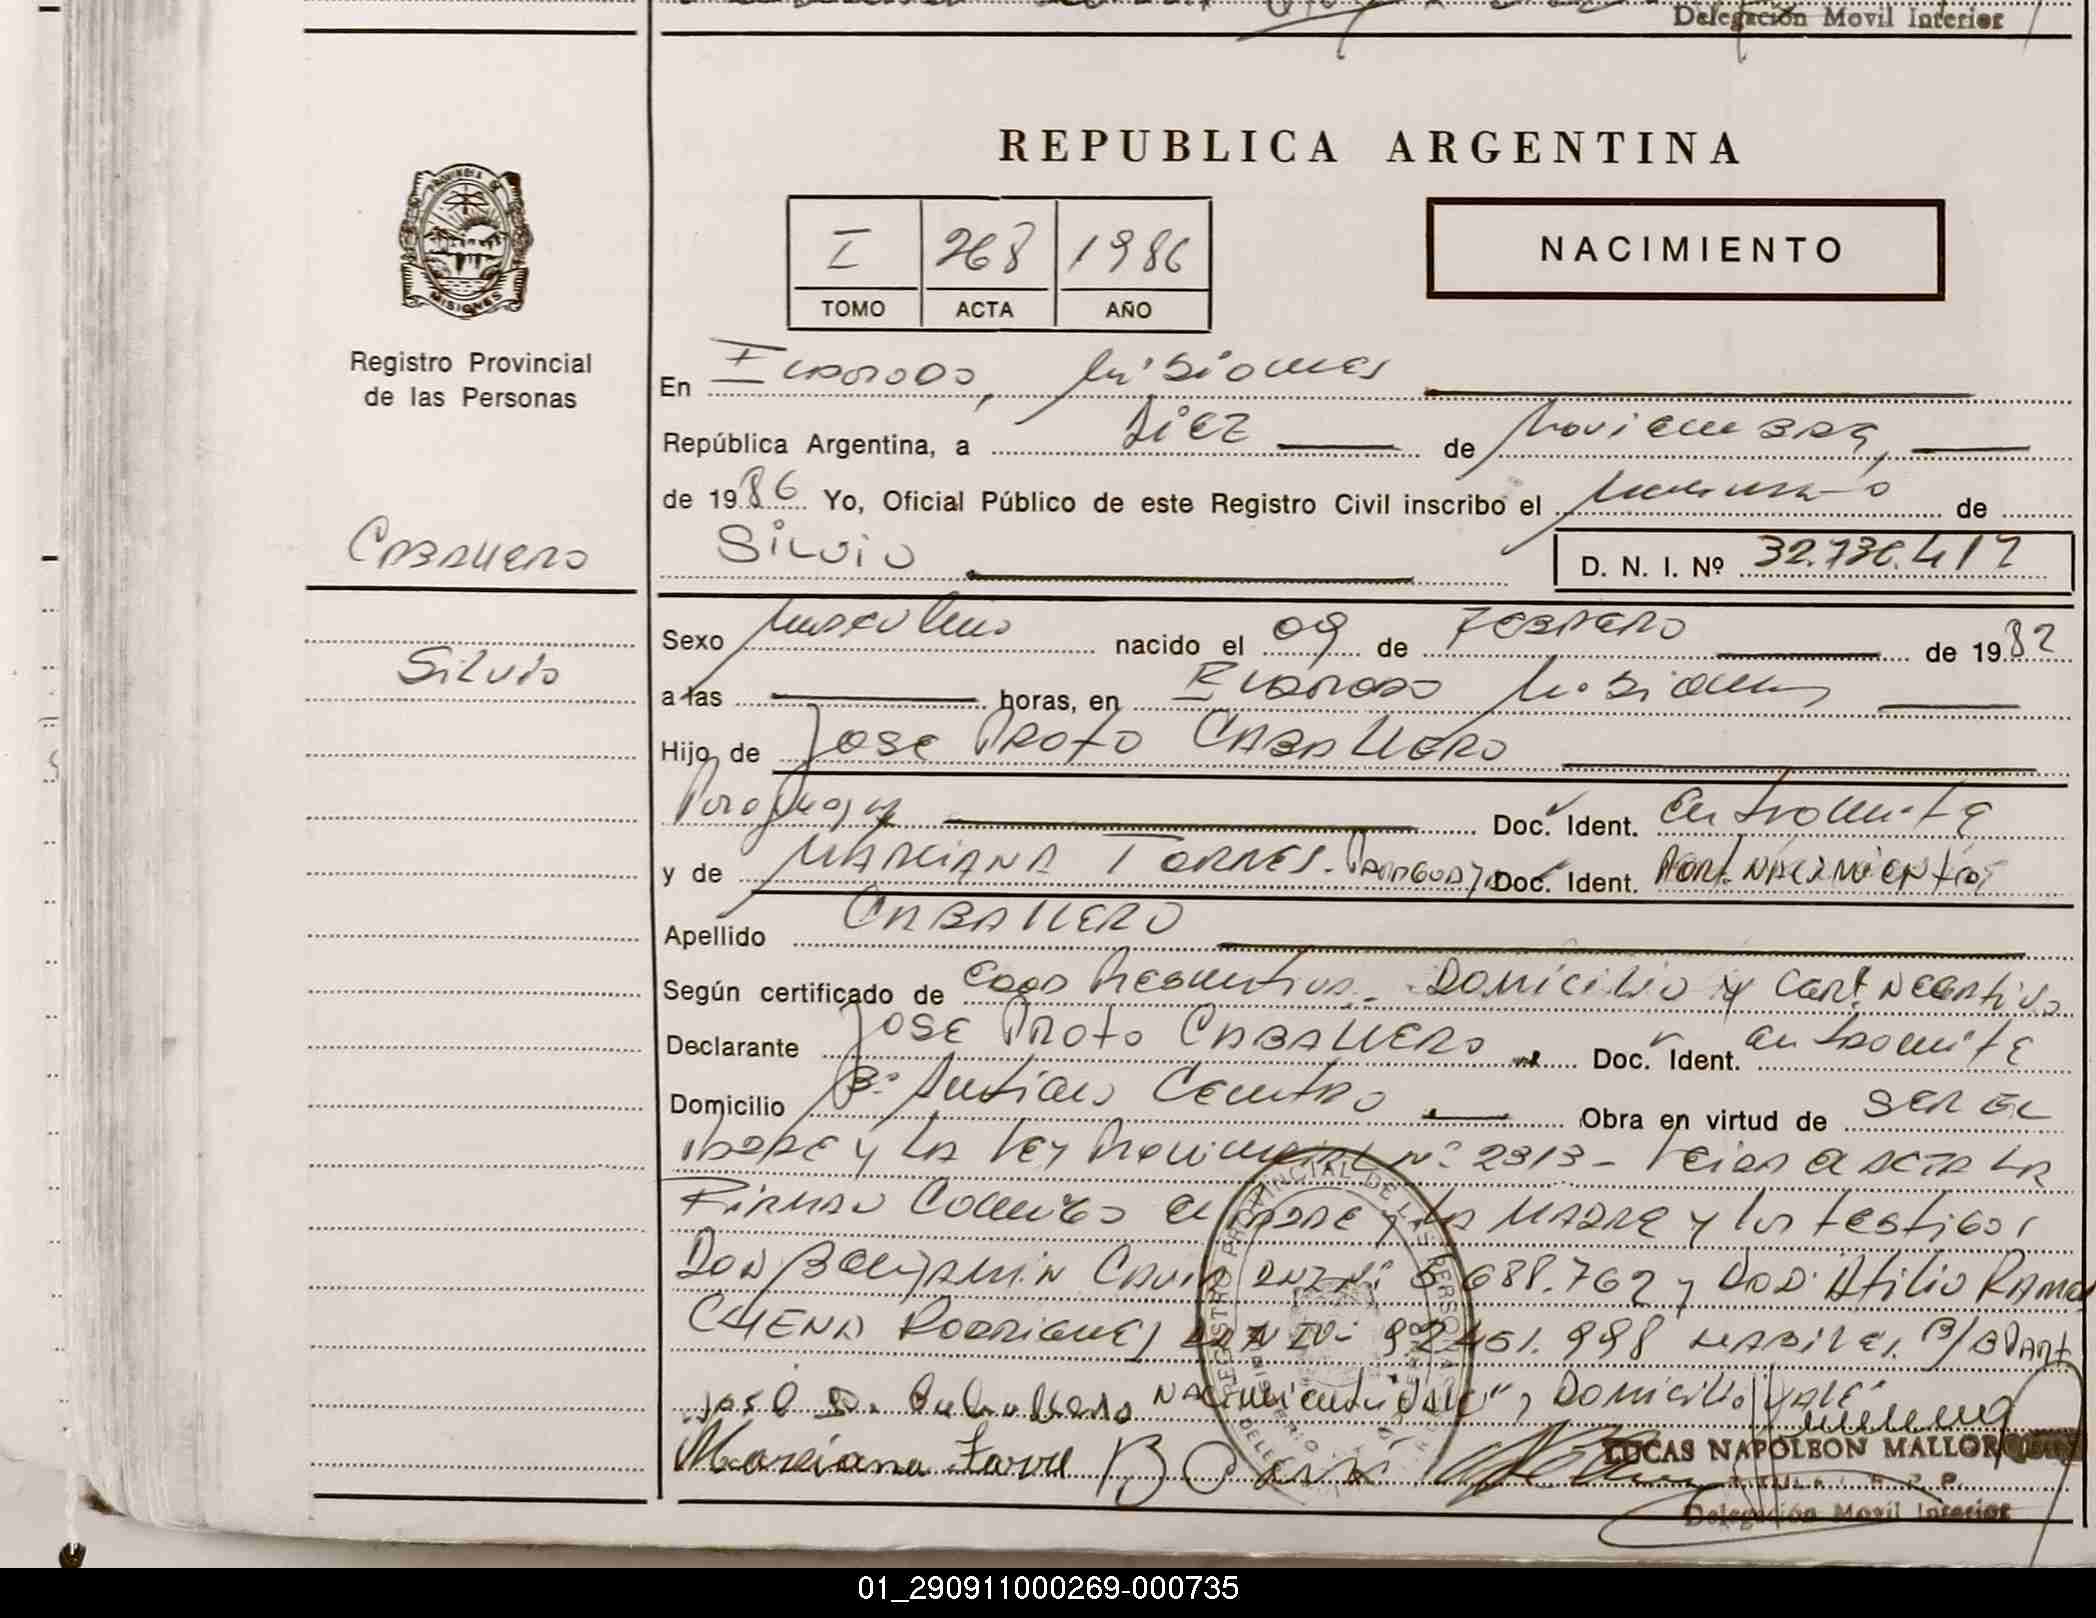 Delegación Movil Interior
REPUBLICA ARGENTINA
PROVINCIA DE
MISIONES
Registro Provincial
de las Personas
I 268 1986
TOMO ACTA AÑO
NACIMIENTO
En Eldorado, Misiones
República Argentina, a diez de Noviembre,
de 1986 Yo, Oficial Público de este Registro Civil inscribo el nacimiento de
CABAllero
Silvio
D. N. I. Nº 32.736.417
Silvio
Sexo masculino nacido el 09 de Febrero de 1982
a las horas, en Eldorado Misiones
Hijo de Jose Proto CABAllero
Paraguaya Doc. Ident. en tramite
y de MARCIANA Torres. Paraguaya Doc. Ident. Part. Nacimiento
Apellido CABAllero
Según certificado de Domicilio y Cert. Negativo
Declarante Jose Proto CABAllero Doc. Ident. en tramite
Domicilio Bº Centro Obra en virtud de ser el
padre y la ley Provincial nº 2313 - leida el acta la
Firman conmigo el padre y la madre y los testigos
Don Benjamin DNI Nº 688.762 y Don Atilio Ramon
CHENA Rodriguez DNI Nº 92.451.998 habiles. B/B Part
Nacimiento "Vale", Domicilio "Vale"
LUCAS NAPOLEON MALLOR
Marciana Torre
Delegación Movil Interior
01_290911000269-000735